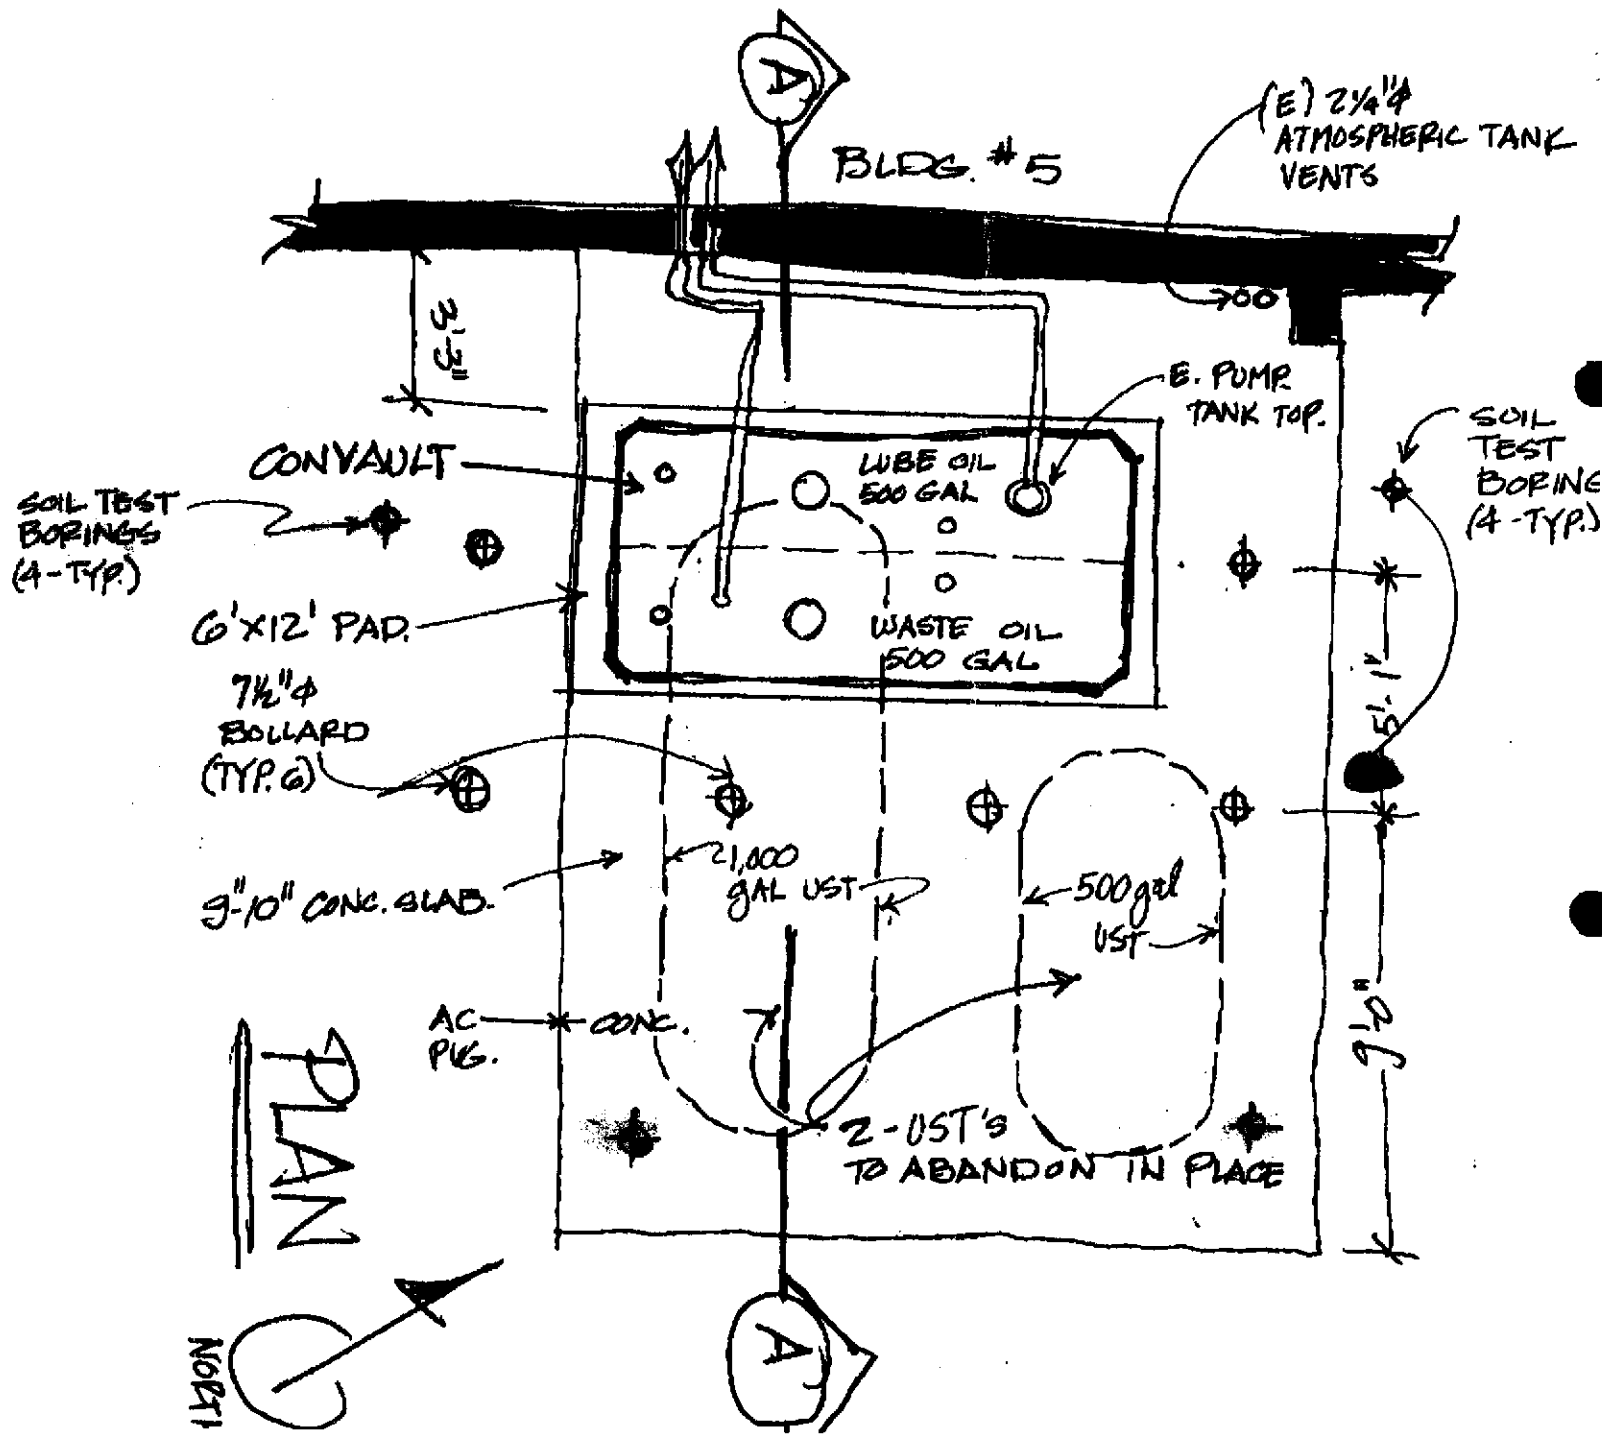 A
BLDG. #5
(E) 2¼"⌀
ATMOSPHERIC TANK
VENTS
3'-3"
E. PUMP.
TANK TOP.
SOIL
TEST
BORING
(4-TYP.)
CONVAULT
LUBE OIL
500 GAL
SOIL TEST
BORINGS
(4-TYP.)
6'X12' PAD.
WASTE OIL
500 GAL
7½"⌀
BOLLARD
(TYP. 6)
5'-1"
1,000
GAL UST
500 gal
UST
9"-10" CONC. SLAB.
AC
CONC.
9'-0"
2-UST'S
TO ABANDON IN PLACE
PLAN
NORTH
A